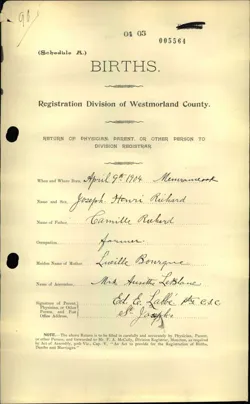 91
04 05
(Schedule A.)
005564
BIRTHS.
Registration Division of Westmorland County.
RETURN OF PHYSICIAN, PARENT, OR OTHER PERSON TO
DIVISION REGISTRAR
When and Where Born, April 9th 1904 Memramcook
Name and Sex, Joseph Henri Richard
Name of Father, Camille Richard
Occupation, farmer
Maiden Name of Mother, Lucille Bourque
Name of Mrs LeBlanc
Signature of Parent,
Physician, or Other
Person, and Post
Office Address,
Ed. E. Labbé Ptr CSC
St. Josephs
NOTE.—The above Return is to be filled in carefully and accurately by Physician, Parent,
or other Person, and forwarded to Division Registrar, Moncton, as required
by Act of Assembly, "An Act to provide for the Registration of Births,
Deaths and Marriages."